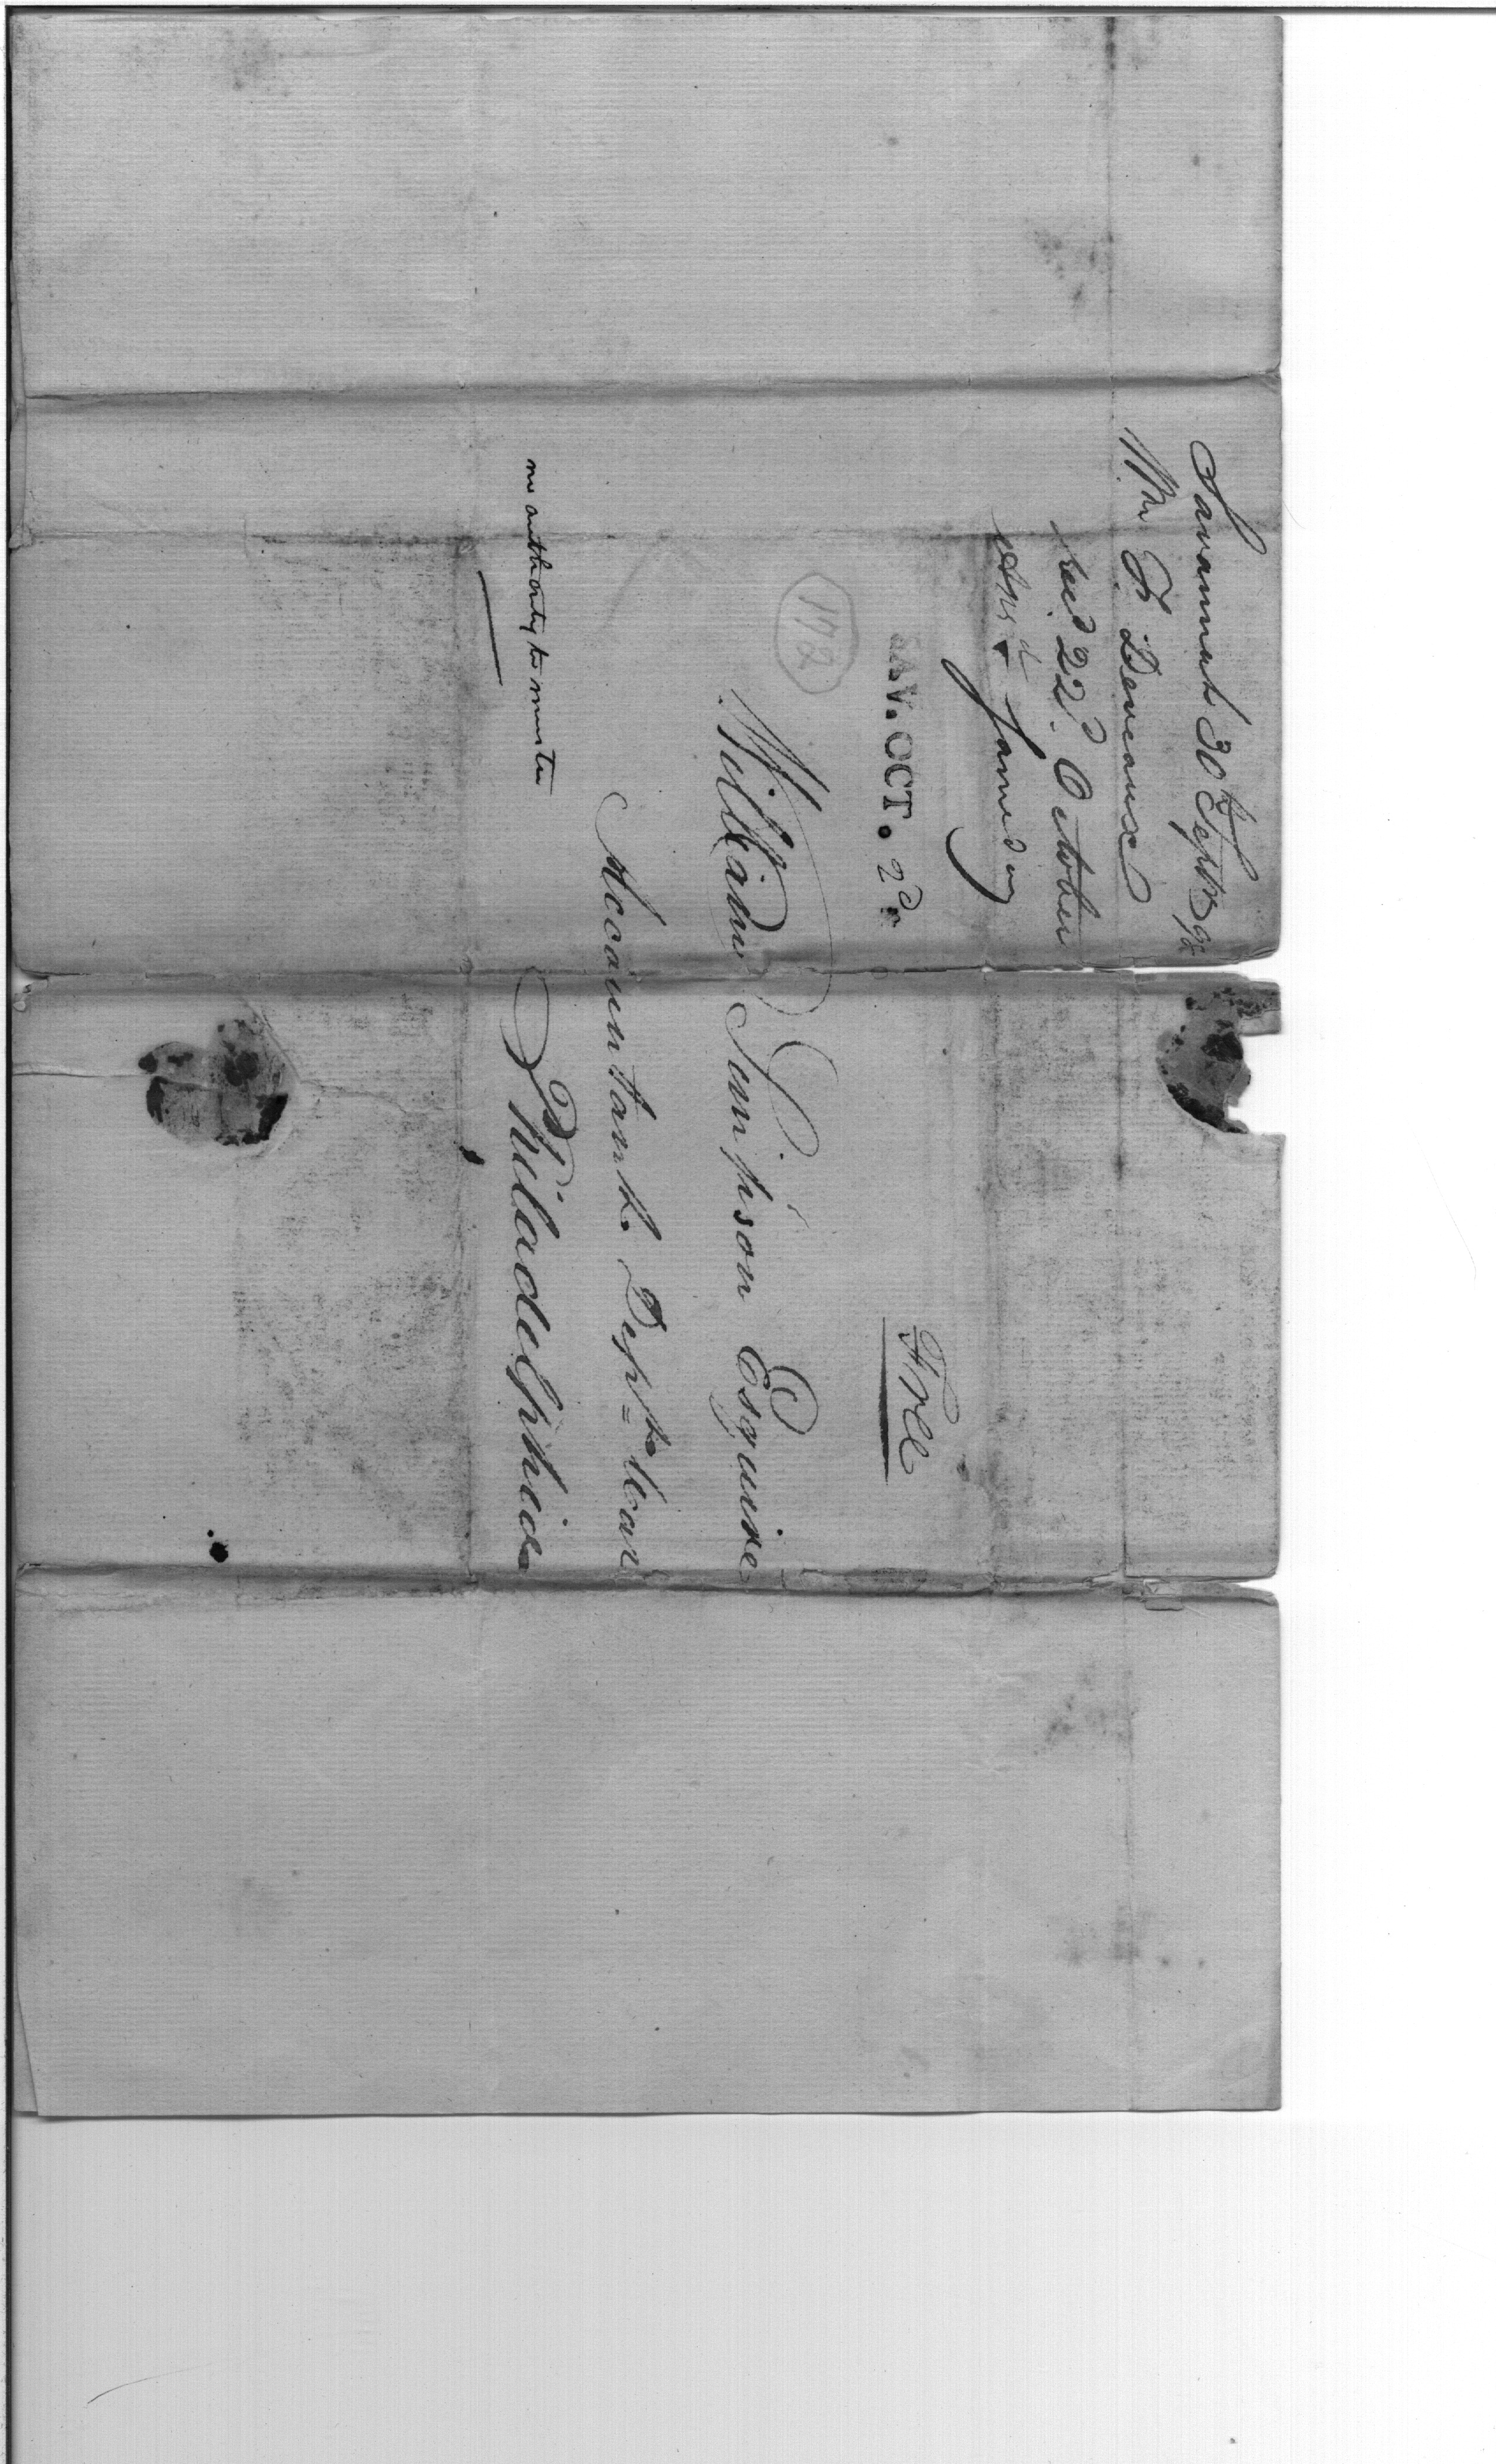 Savannah 30th Septr 98
Wm F. Deveaux
recd 22d. October
Ansd
same day
SAV. OCT. 2d.
Free
172
William Simpson Esquire
Accountant. Deptt= War
Philadelphia
no authority to muster